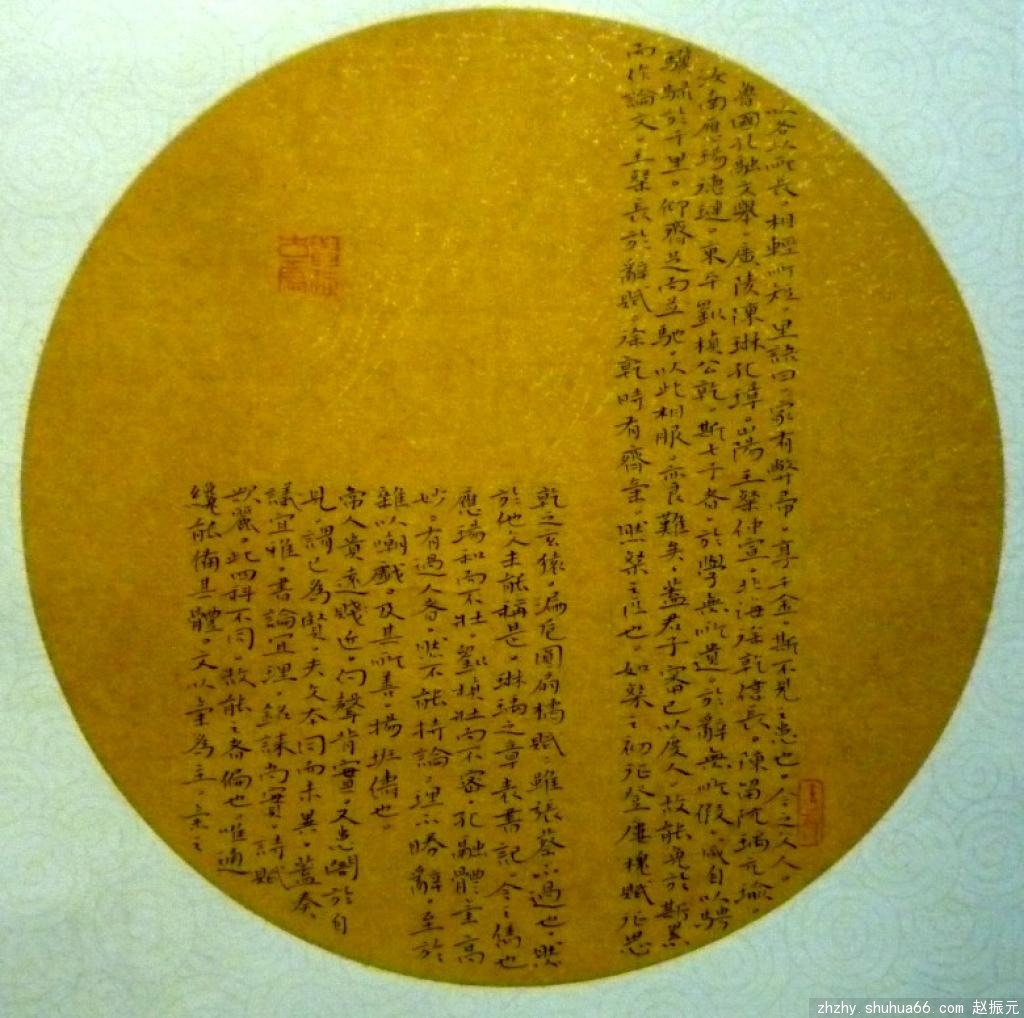 以各以所長。相輕所短。里語曰。家有弊帚。享千金。斯不見之患也。今之人人。
魯國孔融文舉。廣陵陳琳孔璋。山陽王粲仲宣。北海徐乾偉長。陳留阮瑀元瑜。
汝南應瑒德璉。東平劉楨公乾。斯七子者。於學無所遺。於辭無所假。咸自以騁
驥騄於千里。仰齊足而並馳。以此相服。亦良難矣。蓋君子審己以度人。故能免於斯累
而作論文。王粲長於辭賦。徐乾時有齊氣。然粲之匹也。如粲之初征登樓槐賦征思
乾之玄猿。漏卮圓扇橘賦。雖張蔡不過也。然
於他文未能稱是。琳瑀之章表書記。今之儁也
應瑒和而不壯。劉楨壯而不密。孔融體氣高
妙。有過人者。然不能持論。理不勝辭。至於
雜以嘲戲。及其所善。揚班儔也。
常人貴遠賤近。向聲背實。又患闇於自
見。謂己為賢。夫文本同而末異。蓋奏
議宜雅。書論宜理。銘誄尚實。詩賦
欲麗。此四科不同。故能之者偏也。唯通
纔能備其體。文以氣為主。氣之
zhzhy.shuhua66.com 赵振元